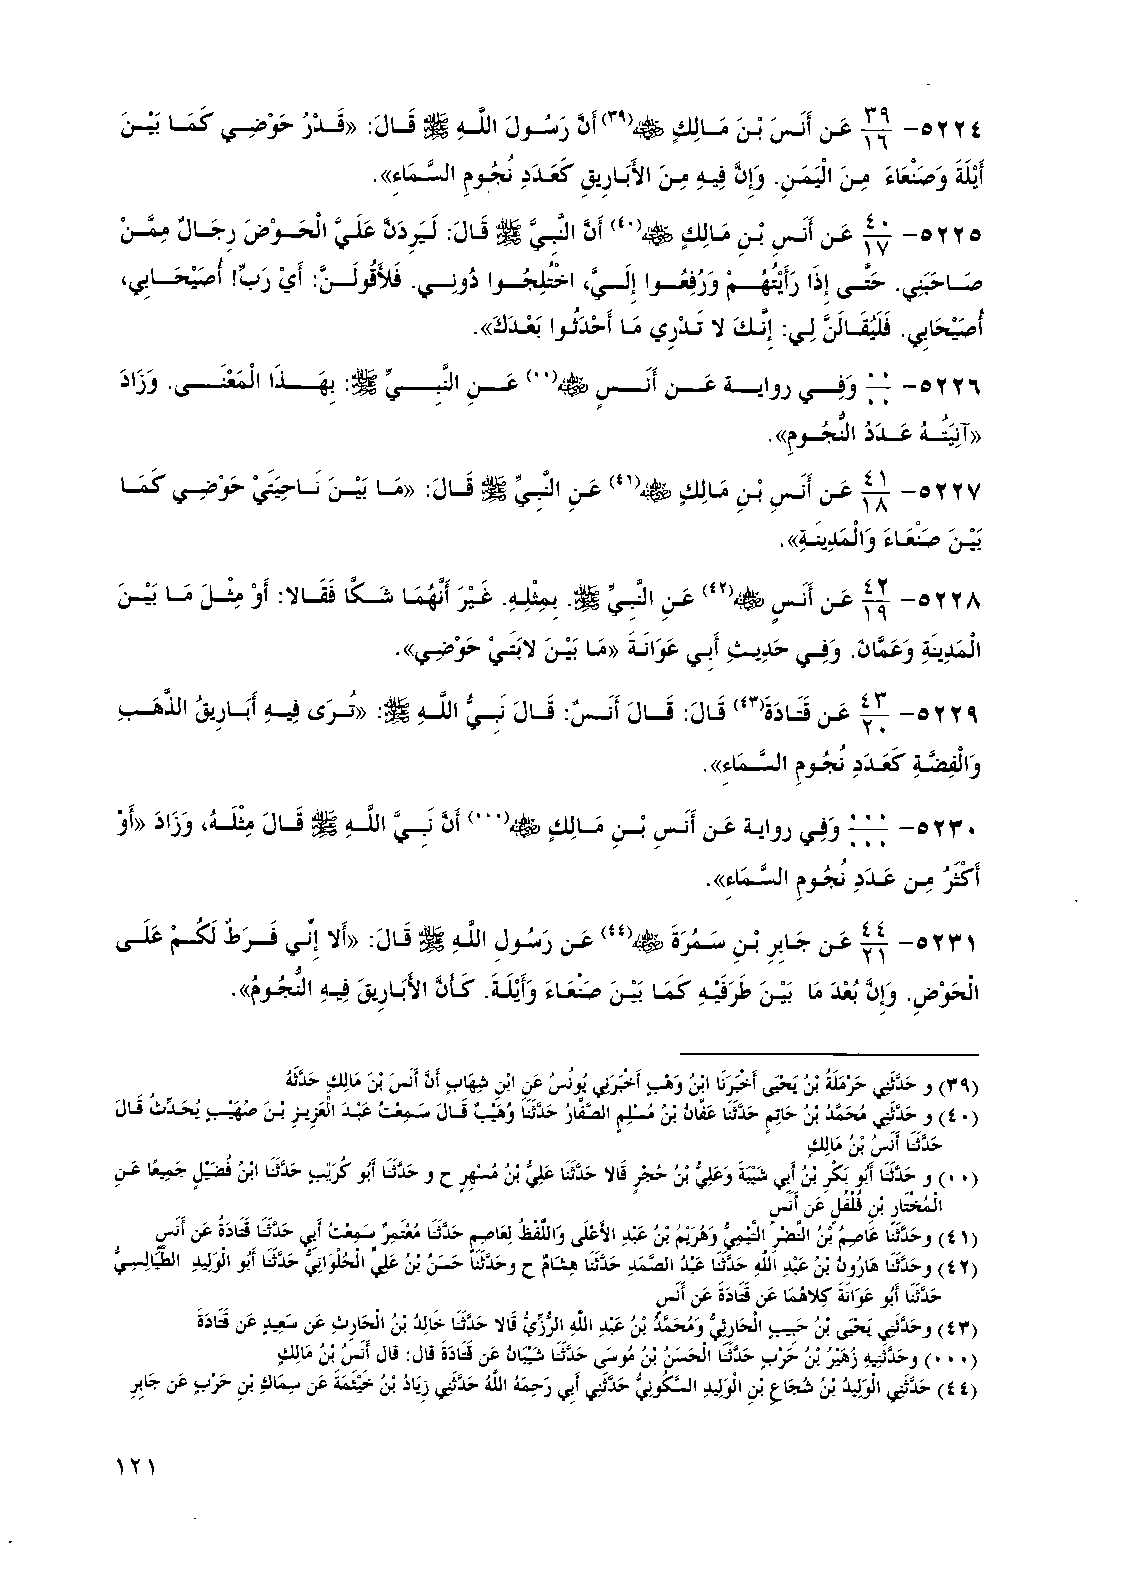 ٥٢٢٤- ٣٩/١٦ عَن أَنَسَ بْنَ مَالِكٍ ﷺ(٣٩) أَنَّ رَسُولَ اللَّهِ ﷺ قَالَ: «قَدْرُ حَوْضِي كَمَا بَيْنَ
أَيْلَةَ وَصَنْعَاءَ مِنَ الْيَمَنِ. وَإِنَّ فِيهِ مِنَ الأَبَارِيقِ كَعَدَدِ نُجُومِ السَّمَاءِ».
٥٢٢٥- ٤٠/١٧ عَن أَنَسِ بْنِ مَالِكٍ ﷺ(٤٠) أَنَّ النَّبِيَّ ﷺ قَالَ: لَيَرِدَنَّ عَلَيَّ الْحَوْضَ رِجَالٌ مِمَّنْ
صَاحَبَنِي. حَتَّى إِذَا رَأَيْتُهُمْ وَرُفِعُوا إِلَيَّ، اخْتُلِجُوا دُونِي. فَلأَقُولَنَّ: أَيْ رَبِّ! أُصَيْحَابِي،
أُصَيْحَابِي. فَلَيُقَالَنَّ لِي: إِنَّكَ لا تَدْرِي مَا أَحْدَثُوا بَعْدَكَ».
٥٢٢٦- ٠٠/٠٠ وَفِي رواية عَن أَنَسٍ ﷺ(٠٠) عَنِ النَّبِيِّ ﷺ: بِهَذَا الْمَعْنَى. وَزَادَ
«آنِيَتُهُ عَدَدُ النُّجُومِ».
٥٢٢٧- ٤١/١٨ عَن أَنَسِ بْنِ مَالِكٍ ﷺ(٤١) عَنِ النَّبِيِّ ﷺ قَالَ: «مَا بَيْنَ نَاحِيَتَيْ حَوْضِي كَمَا
بَيْنَ صَنْعَاءَ وَالْمَدِينَةِ».
٥٢٢٨- ٤٢/١٩ عَن أَنَسٍ ﷺ(٤٢) عَنِ النَّبِيِّ ﷺ. بِمِثْلِهِ. غَيْرَ أَنَّهُمَا شَكَّا فَقَالا: أَوْ مِثْلَ مَا بَيْنَ
الْمَدِينَةِ وَعَمَّانَ. وَفِي حَدِيثِ أَبِي عَوَانَةَ «مَا بَيْنَ لابَتَيْ حَوْضِي».
٥٢٢٩- ٤٣/٢٠ عَن قَتَادَةَ(٤٣) قَالَ: قَالَ أَنَسٌ: قَالَ نَبِيُّ اللَّهِ ﷺ: «تُرَى فِيهِ أَبَارِيقُ الذَّهَبِ
وَالْفِضَّةِ كَعَدَدِ نُجُومِ السَّمَاءِ».
٥٢٣٠- ٠٠٠/٠٠٠ وَفِي رواية عَن أَنَسِ بْنِ مَالِكٍ ﷺ(٠٠٠) أَنَّ نَبِيَّ اللَّهِ ﷺ قَالَ مِثْلَهُ، وَزَادَ «أَوْ
أَكْثَرُ مِن عَدَدِ نُجُومِ السَّمَاءِ».
٥٢٣١- ٤٤/٢١ عَن جَابِرِ بْنِ سَمُرَةَ ﷺ(٤٤) عَن رَسُولِ اللهِ ﷺ قَالَ: «أَلا إِنِّي فَرَطٌ لَكُمْ عَلَى
الْحَوْضِ. وَإِنَّ بُعْدَ مَا بَيْنَ طَرَفَيْهِ كَمَا بَيْنَ صَنْعَاءَ وَأَيْلَةَ. كَأَنَّ الأَبَارِيقَ فِيهِ النُّجُومُ».
(٣٩) و حَدَّثَنِي حَرْمَلَةُ بْنُ يَحْيَى أَخْبَرَنَا ابْنُ وَهْبٍ أَخْبَرَنِي يُونُسُ عَنِ ابْنِ شِهَابٍ أَنَّ أَنَسَ بْنَ مَالِكٍ حَدَّثَهُ
(٤٠) و حَدَّثَنِي مُحَمَّدُ بْنُ حَاتِمٍ حَدَّثَنَا عَفَّانُ بْنُ مُسْلِمٍ الصَّفَّارُ حَدَّثَنَا وُهَيْبٌ قَالَ سَمِعْتُ عَبْدَ الْعَزِيزِ بْنَ صُهَيْبٍ يُحَدِّثُ قَالَ
حَدَّثَنَا أَنَسُ بْنُ مَالِكٍ
(٠٠) و حَدَّثَنَا أَبُو بَكْرِ بْنُ أَبِي شَيْبَةَ وَعَلِيُّ بْنُ حُجْرٍ قَالا حَدَّثَنَا عَلِيُّ بْنُ مُسْهِرٍ ح و حَدَّثَنَا أَبُو كُرَيْبٍ حَدَّثَنَا ابْنُ فُضَيْلٍ جَمِيعًا عَنِ
الْمُخْتَارِ بْنِ فُلْفُلٍ عَن أَنَسٍ
(٤١) وحَدَّثَنَا عَاصِمُ بْنُ النَّضْرِ التَّيْمِيُّ وَهُرَيْمُ بْنُ عَبْدِ الأَعْلَى وَاللَّفْظُ لِعَاصِمٍ حَدَّثَنَا مُعْتَمِرٌ سَمِعْتُ أَبِي حَدَّثَنَا قَتَادَةُ عَن أَنَسٍ
(٤٢) وحَدَّثَنَا هَارُونُ بْنُ عَبْدِ اللَّهِ حَدَّثَنَا عَبْدُ الصَّمَدِ حَدَّثَنَا هِشَامٌ ح وحَدَّثَنَا حَسَنُ بْنُ عَلِيٍّ الْحُلْوَانِيُّ حَدَّثَنَا أَبُو الْوَلِيدِ الطَّيَالِسِيُّ
حَدَّثَنَا أَبُو عَوَانَةَ كِلاهُمَا عَن قَتَادَةَ عَن أَنَسٍ
(٤٣) وحَدَّثَنِي يَحْيَى بْنُ حَبِيبٍ الْحَارِثِيُّ وَمُحَمَّدُ بْنُ عَبْدِ اللَّهِ الرُّزِّيُّ قَالا حَدَّثَنَا خَالِدُ بْنُ الْحَارِثِ عَن سَعِيدٍ عَن قَتَادَةَ
(٠٠٠) وحَدَّثَنِيهِ زُهَيْرُ بْنُ حَرْبٍ حَدَّثَنَا الْحَسَنُ بْنُ مُوسَى حَدَّثَنَا شَيْبَانُ عَن قَتَادَةَ قال: قال أَنَسُ بْنُ مَالِكٍ
(٤٤) حَدَّثَنِي الْوَلِيدُ بْنُ شُجَاعِ بْنِ الْوَلِيدِ السَّكُونِيُّ حَدَّثَنِي أَبِي رَحِمَهُ اللَّهُ حَدَّثَنِي زِيَادُ بْنُ خَيْثَمَةَ عَن سِمَاكِ بْنِ حَرْبٍ عَن جَابِرِ
١٢١